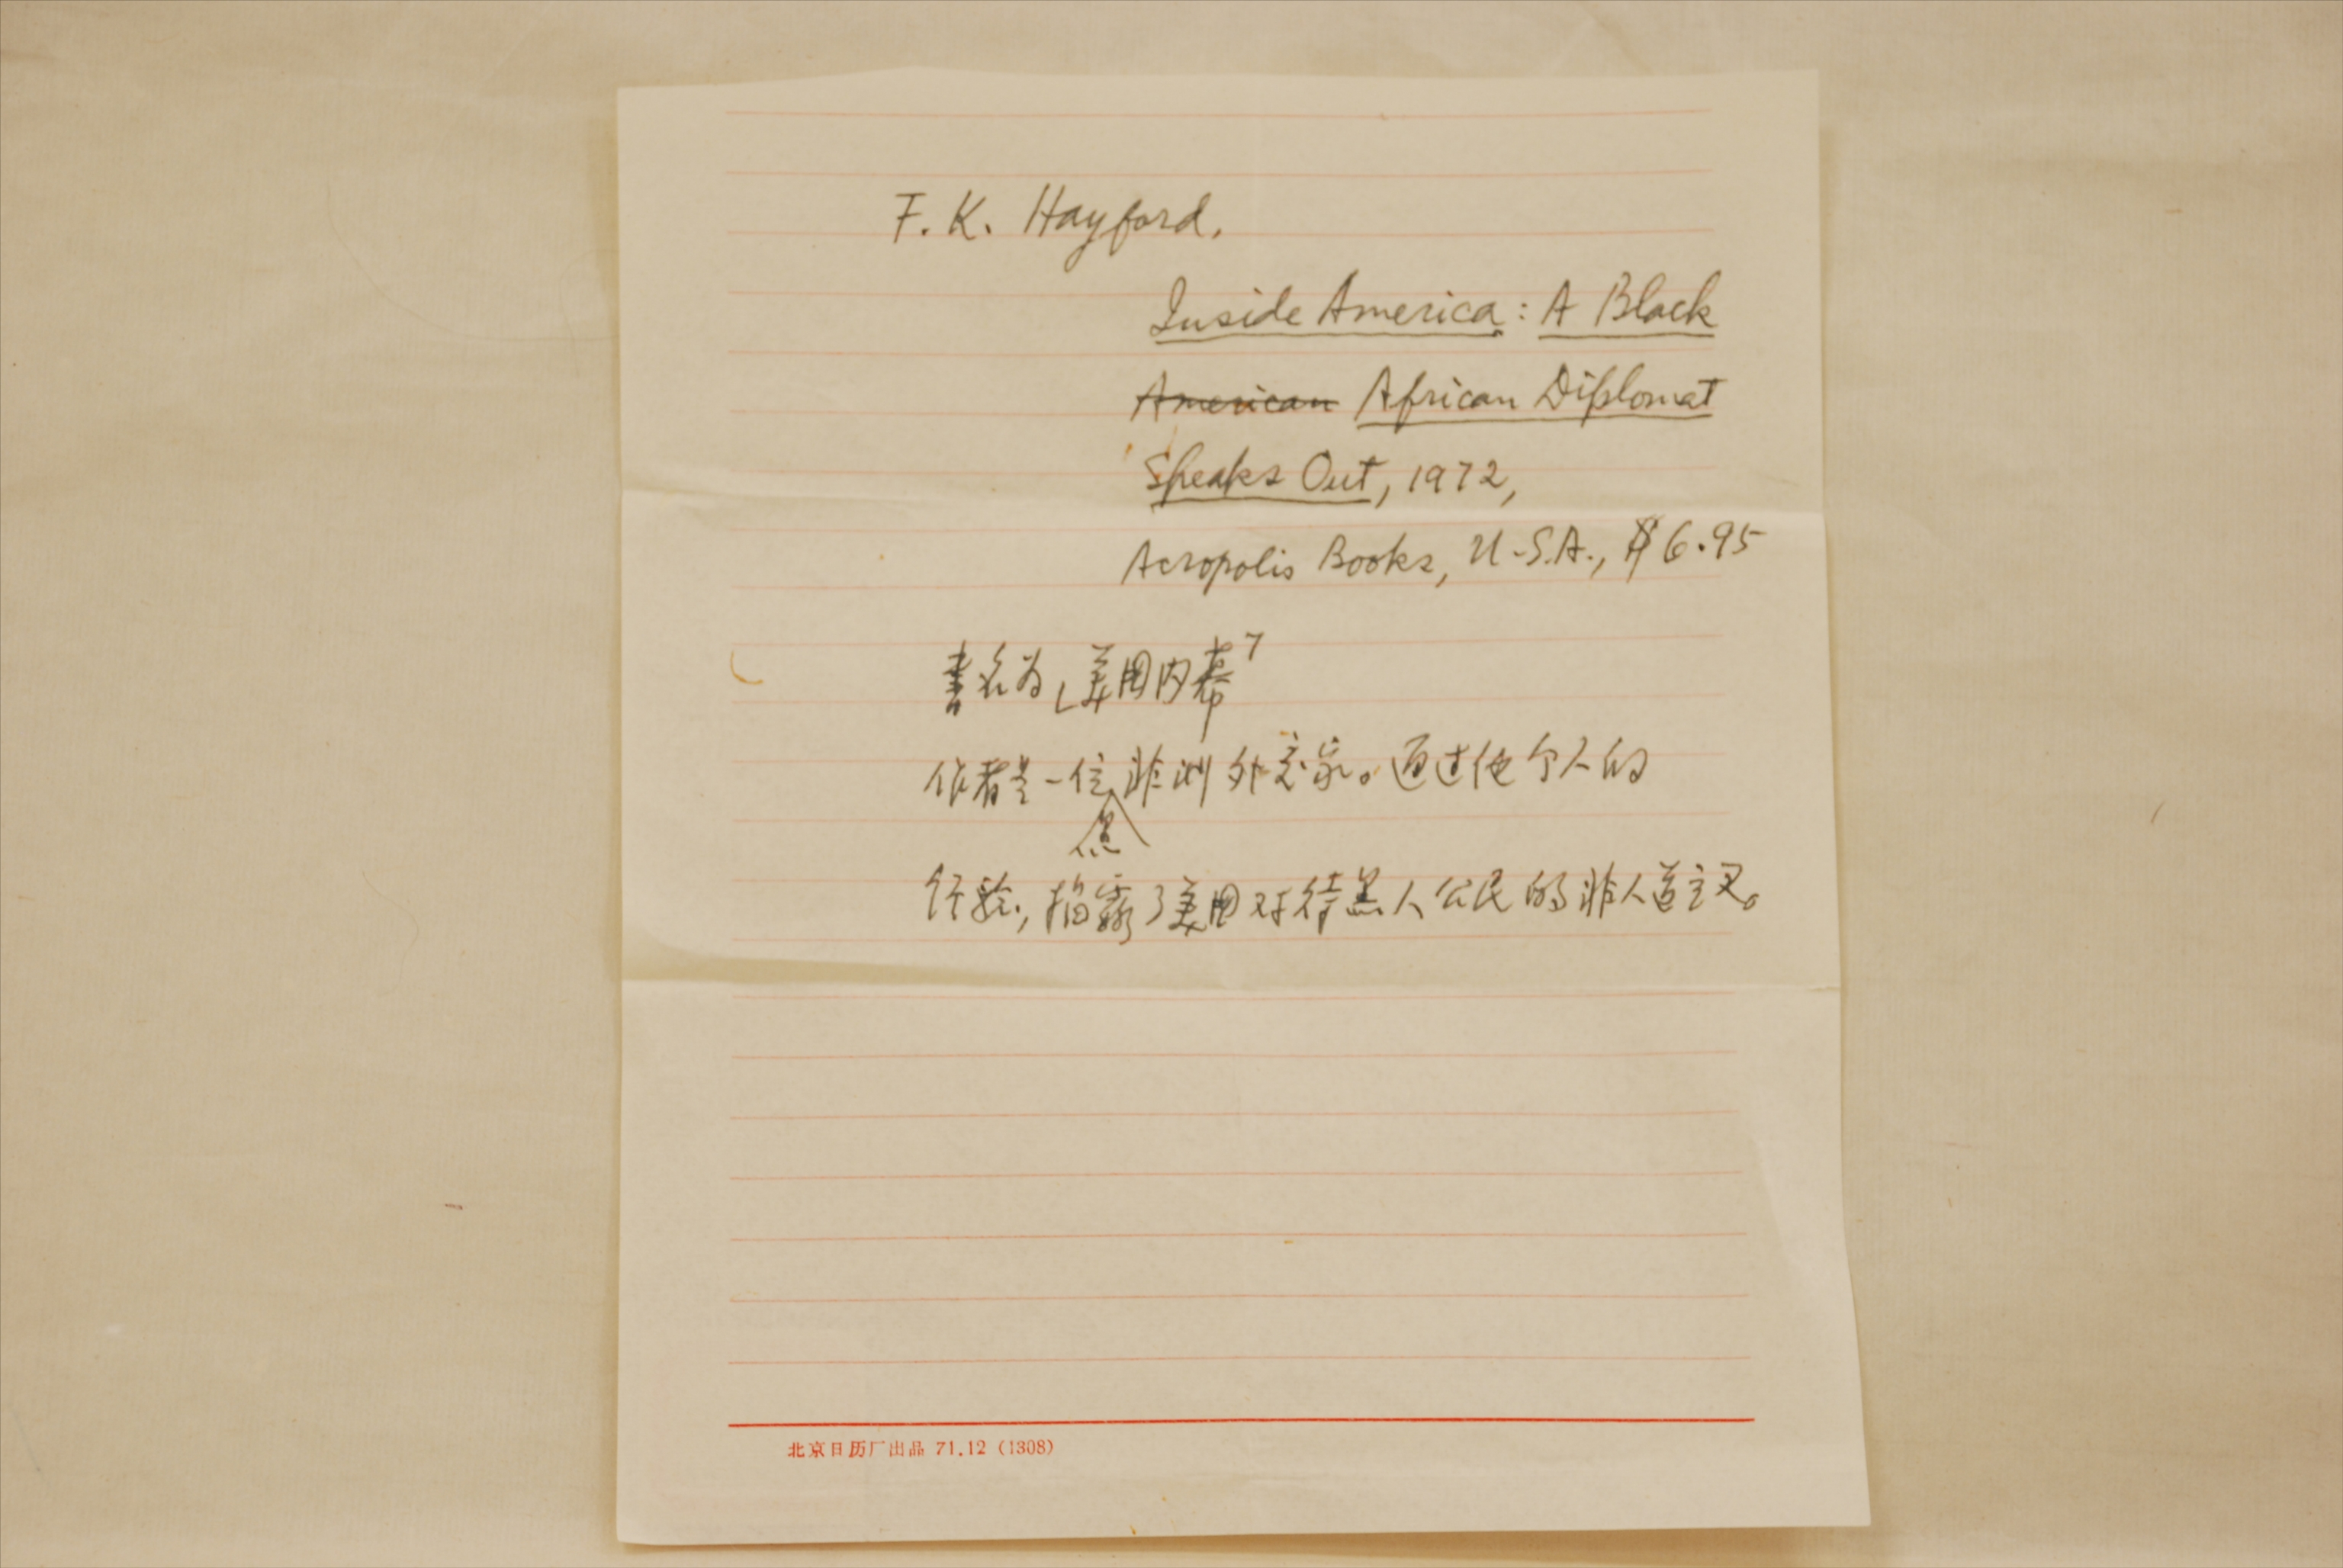 F. K. Hayford.
Inside America: A Black
American African Diplomat
Speaks Out, 1972,
Acropolis Books, U.S.A., $6.95
書名为「美国内幕」
作者是一位非洲外交家。通过他个人的
黑
经验, 揭露了美国对待黑人公民的非人道主义。
北京日历厂出品 71.12 (1308)